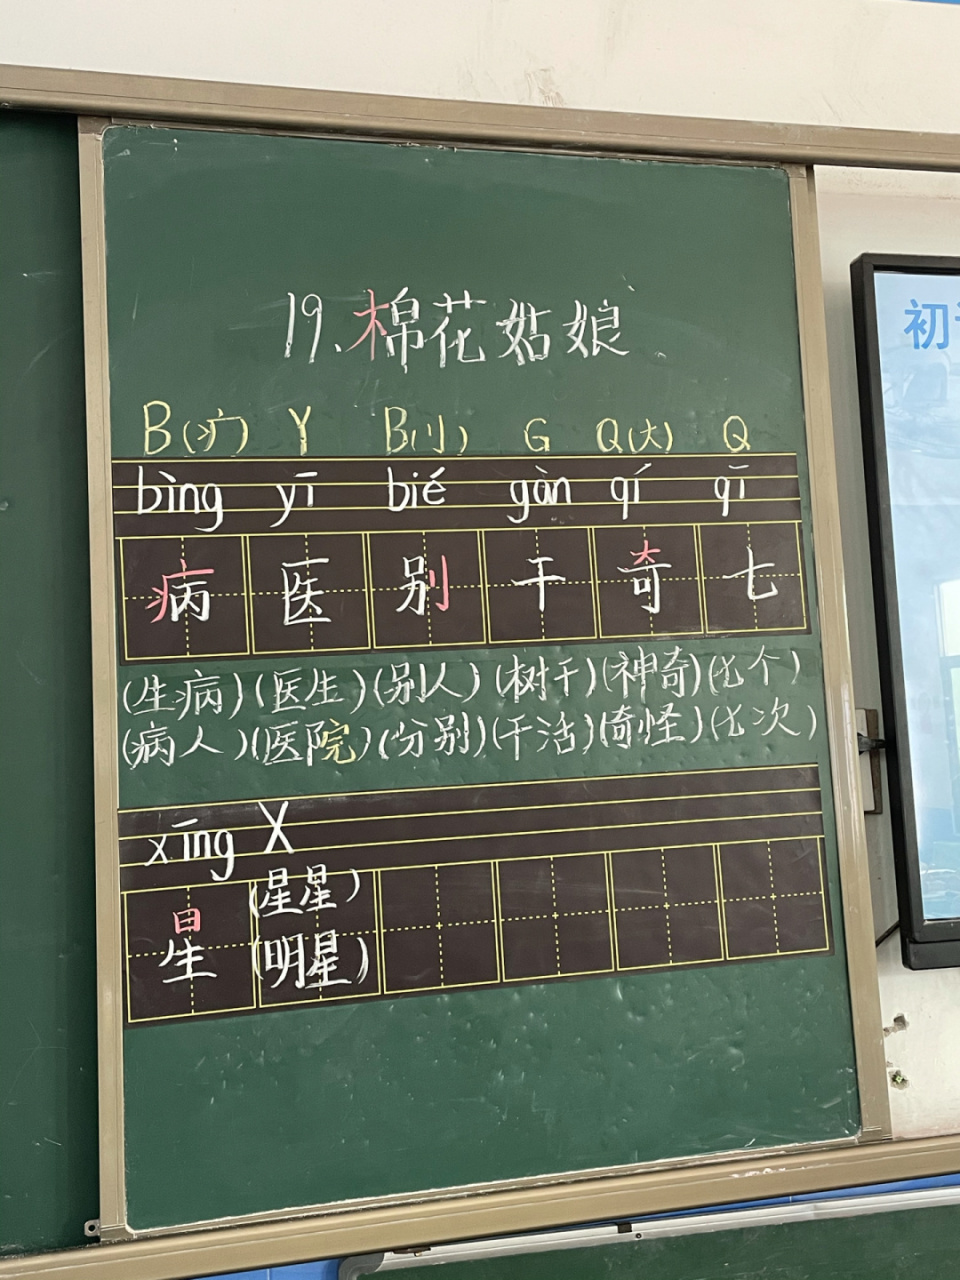 19、棉花姑娘
B(疒) Y B(刂) G Q(大) Q
bìng yī bié gàn qí qī
病 医 别 干 奇 七
(生病)(医生)(别人)(树干)(神奇)(七个)
(病人)(医院)(分别)(干活)(奇怪)(七次)
xīng X
星 (星星)
(明星)
初